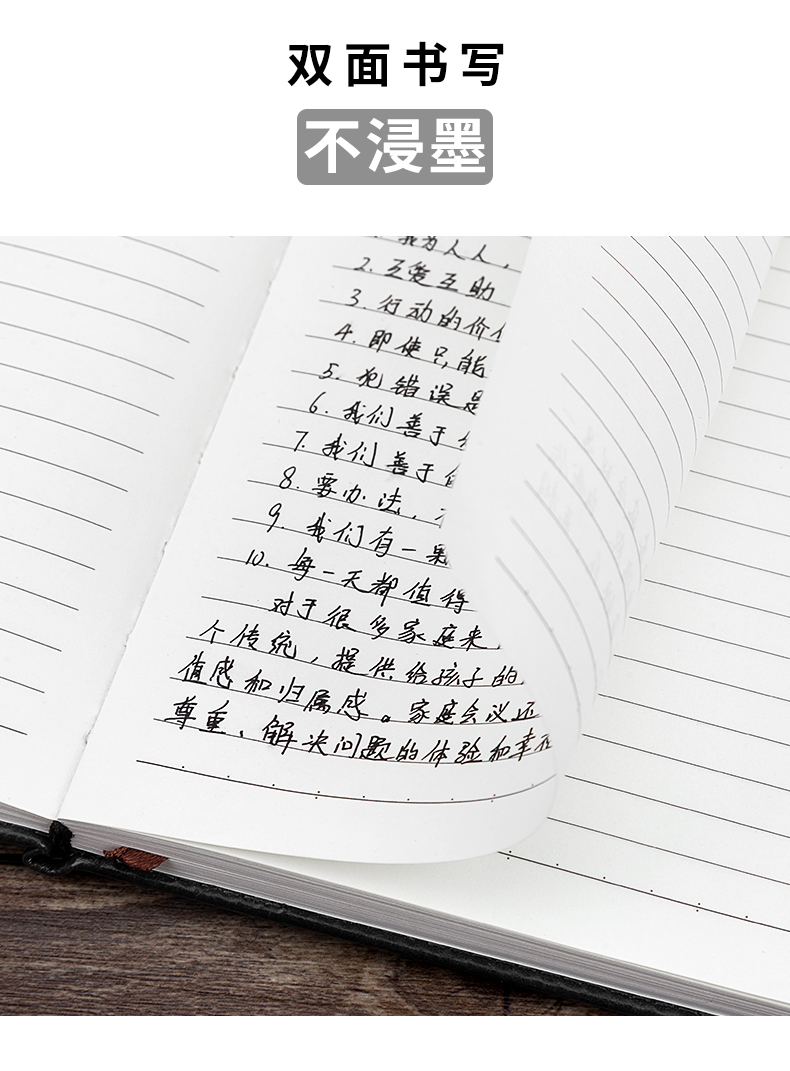 双面书写
不浸墨
1. 我为人人，
2. 互爱互助
3. 行动的价
4. 即使只能
5. 犯错误是
6. 我们善于
7. 我们善于
8. 要办法，
9. 我们有一颗
10. 每一天都值得
对于很多家庭来
个传统，提供给孩子的
值感和归属感。家庭会议还
尊重、解决问题的体验和幸